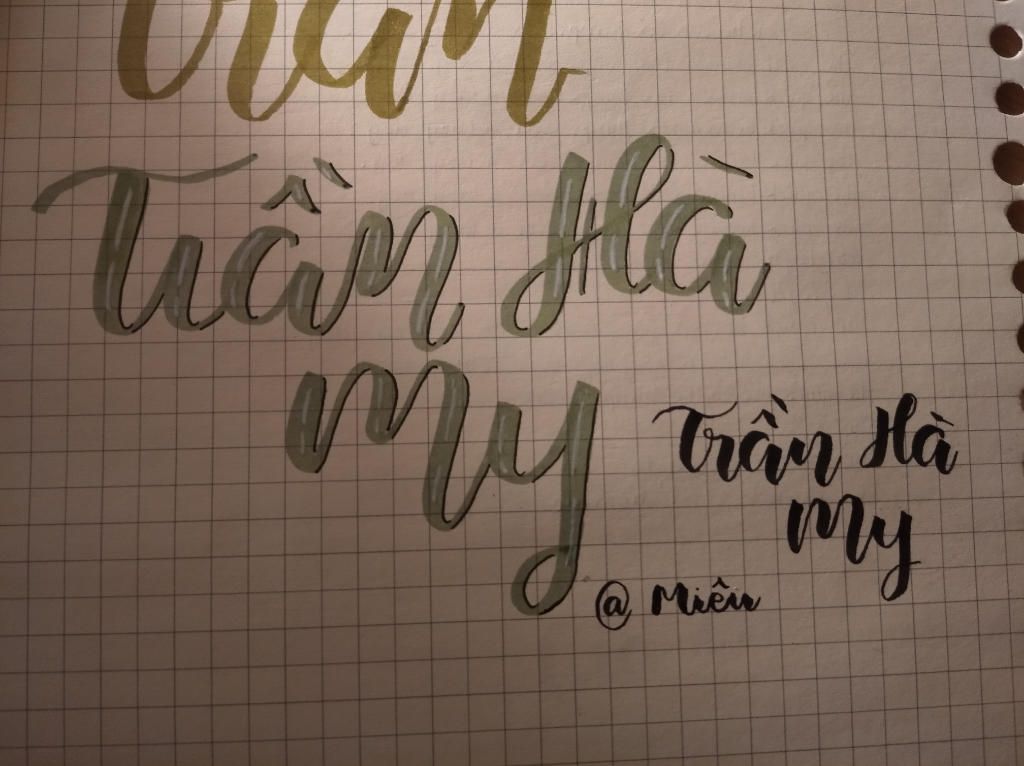 Trần
Trần Hà
My
Trần Hà
My
@ Miêu